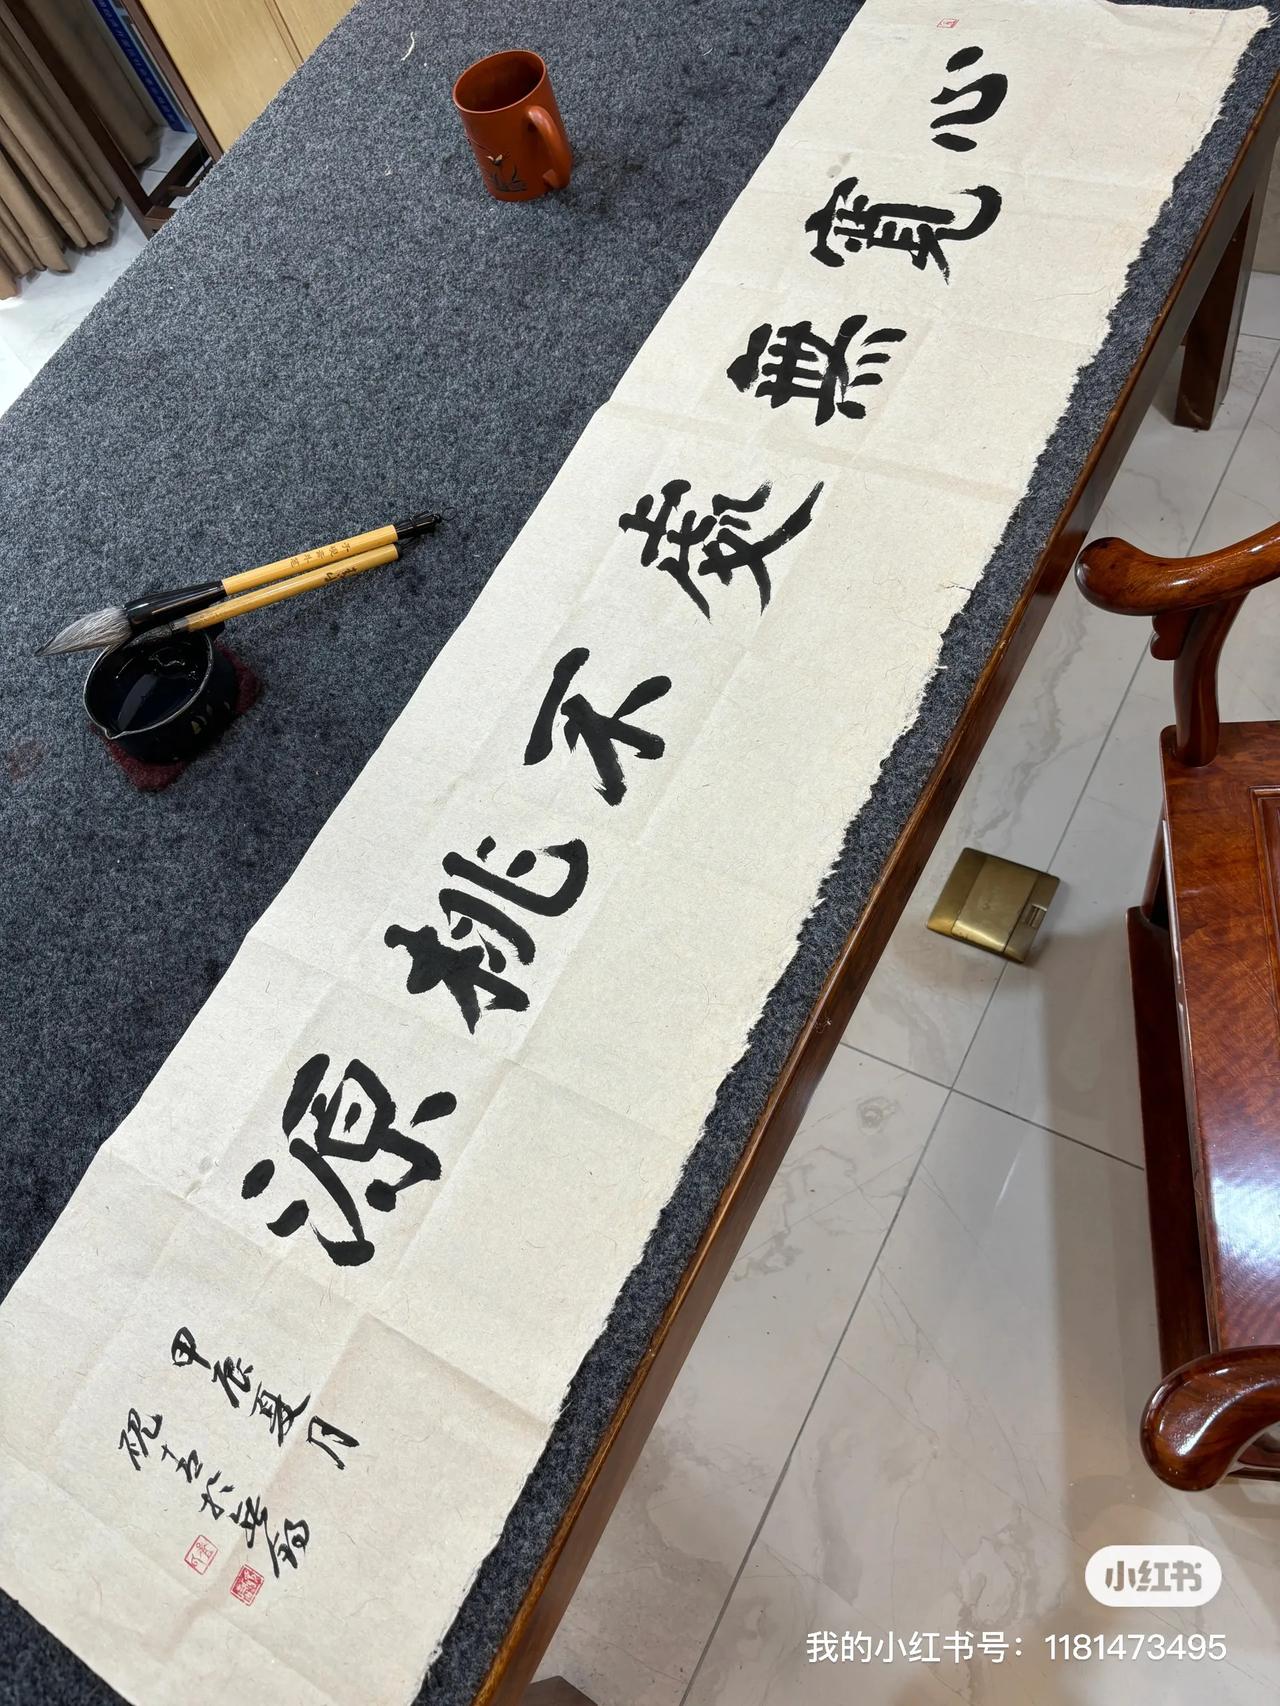 心寬無處不桃源
甲辰夏月
小红书
我的小红书号：1181473495